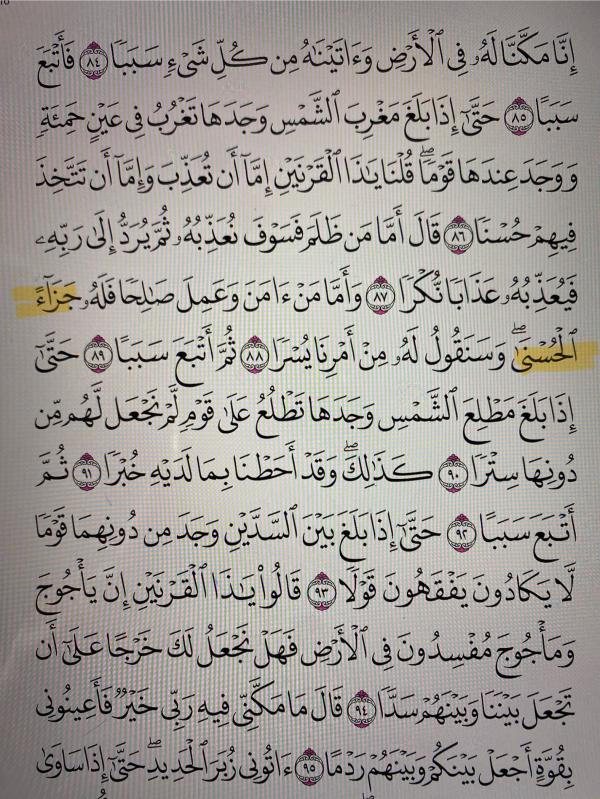 إِنَّا مَكَّنَّا لَهُۥ فِي ٱلْأَرْضِ وَءَاتَيْنَٰهُ مِن كُلِّ شَىْءٍ سَبَبًا ٨٤ فَأَتْبَعَ
سَبَبًا ٨٥ حَتَّىٰٓ إِذَا بَلَغَ مَغْرِبَ ٱلشَّمْسِ وَجَدَهَا تَغْرُبُ فِي عَيْنٍ حَمِئَةٍ
وَوَجَدَ عِندَهَا قَوْمًاۖ قُلْنَا يَٰذَا ٱلْقَرْنَيْنِ إِمَّآ أَن تُعَذِّبَ وَإِمَّآ أَن تَتَّخِذَ
فِيهِمْ حُسْنًا ٨٦ قَالَ أَمَّا مَن ظَلَمَ فَسَوْفَ نُعَذِّبُهُۥ ثُمَّ يُرَدُّ إِلَىٰ رَبِّهِۦ
فَيُعَذِّبُهُۥ عَذَابًا نُّكْرًا ٨٧ وَأَمَّا مَنْ ءَامَنَ وَعَمِلَ صَٰلِحًا فَلَهُۥ جَزَآءً
ٱلْحُسْنَىٰۖ وَسَنَقُولُ لَهُۥ مِنْ أَمْرِنَا يُسْرًا ٨٨ ثُمَّ أَتْبَعَ سَبَبًا ٨٩ حَتَّىٰٓ
إِذَا بَلَغَ مَطْلِعَ ٱلشَّمْسِ وَجَدَهَا تَطْلُعُ عَلَىٰ قَوْمٍ لَّمْ نَجْعَل لَّهُم مِّن
دُونِهَا سِتْرًا ٩٠ كَذَٰلِكَۖ وَقَدْ أَحَطْنَا بِمَا لَدَيْهِ خُبْرًا ٩١ ثُمَّ
أَتْبَعَ سَبَبًا ٩٢ حَتَّىٰٓ إِذَا بَلَغَ بَيْنَ ٱلسَّدَّيْنِ وَجَدَ مِن دُونِهِمَا قَوْمًا
لَّا يَكَادُونَ يَفْقَهُونَ قَوْلًا ٩٣ قَالُوا۟ يَٰذَا ٱلْقَرْنَيْنِ إِنَّ يَأْجُوجَ
وَمَأْجُوجَ مُفْسِدُونَ فِي ٱلْأَرْضِ فَهَلْ نَجْعَلُ لَكَ خَرْجًا عَلَىٰٓ أَن
تَجْعَلَ بَيْنَنَا وَبَيْنَهُمْ سَدًّا ٩٤ قَالَ مَا مَكَّنِّي فِيهِ رَبِّي خَيْرٌ فَأَعِينُونِي
بِقُوَّةٍ أَجْعَلْ بَيْنَكُمْ وَبَيْنَهُمْ رَدْمًا ٩٥ ءَاتُونِي زُبَرَ ٱلْحَدِيدِۖ حَتَّىٰٓ إِذَا سَاوَىٰ